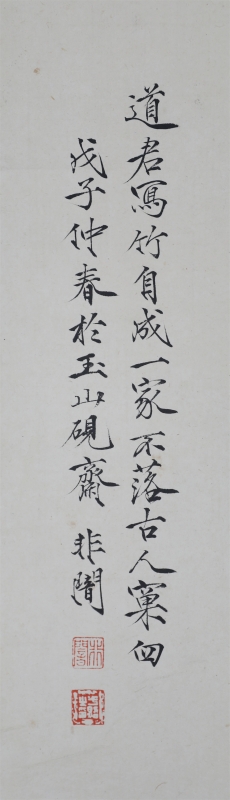 道君寫竹自成一家不落古人窠臼
戊子仲春於玉山硯齋非闇
非闇